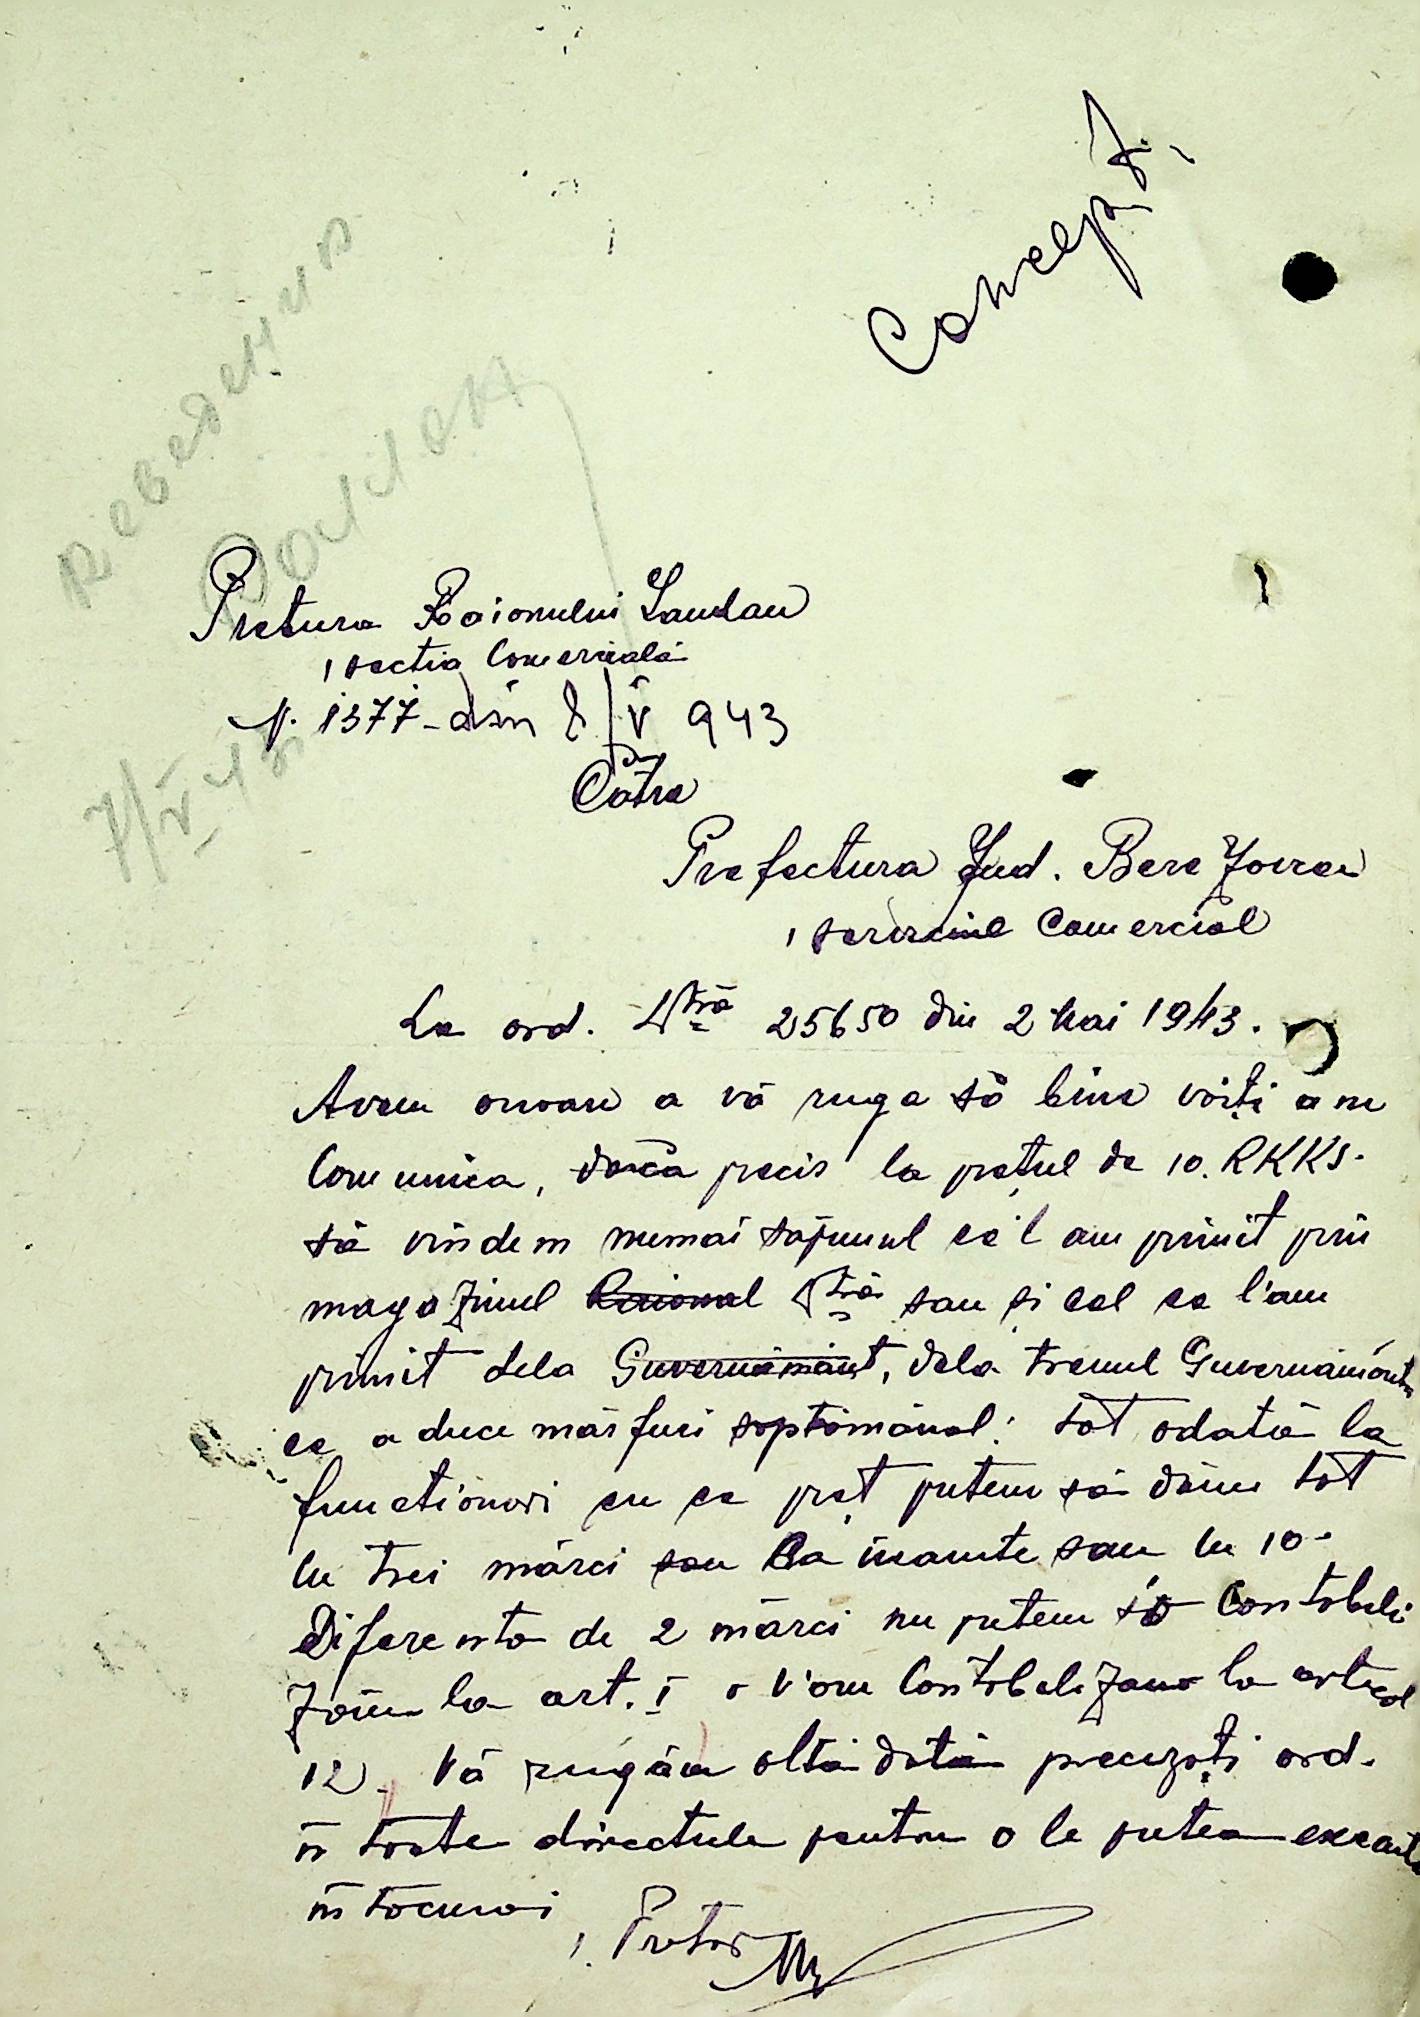 Concept.
Pretura Raionului Landau
secția Comercială
N. 1377 din 8/V 943
Către
Prefectura Jud. Berezovca
serviciul Comercial
La ord. Dtră 25650 din 2 Mai 1943.
Avem onoare a vă ruga să bine voiți a ne
Comunica, dacă precis la prețul de 10. RKKS.
să vindem numai săpunul ce'l am primit prin
magazinul Raional Dtră sau și cel ce l'am
primit dela Guvernământ, dela trenul Guvernământ
ce aduce mărfuri soptămânal: tot odată la
functionari cu ce preț putem să dăm tot
cu trei mărci sau Ca inainte sau cu 10.
Diferenta de 2 mărci nu putem s'o Contabili
zăm la art. I o v'om Contabiliza la articol
12. Vă rugăm altă dată precizați ord.
în toate directiile pentru a le putea executa
întocmai
Pretor
7/V 43